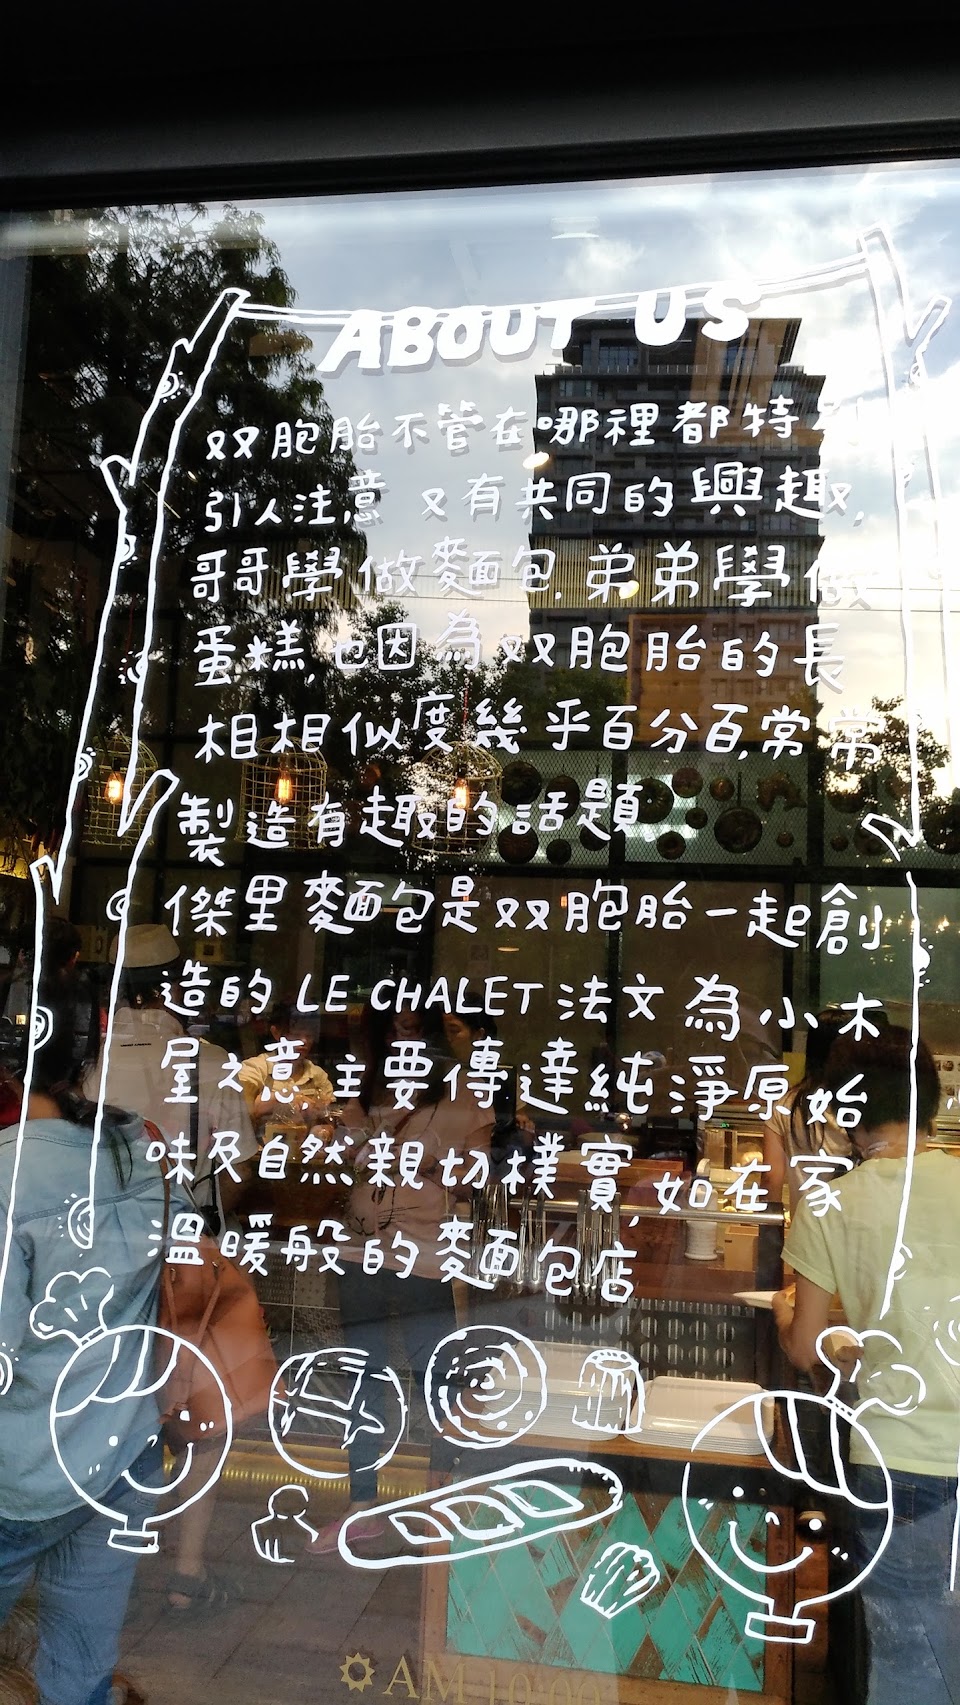 ABOUT US
双胞胎不管在哪裡都特別
引人注意 又有共同的興趣,
哥哥學做麵包,弟弟學做
蛋糕,也因為双胞胎的長
相相似度幾乎百分百,常常
製造有趣的話題
傑里麵包是双胞胎一起創
造的 LE CHALET 法文為小木
屋之意,主要傳達純淨原始
味及自然親切樸實,如在家
溫暖般的麵包店
AM 10:00